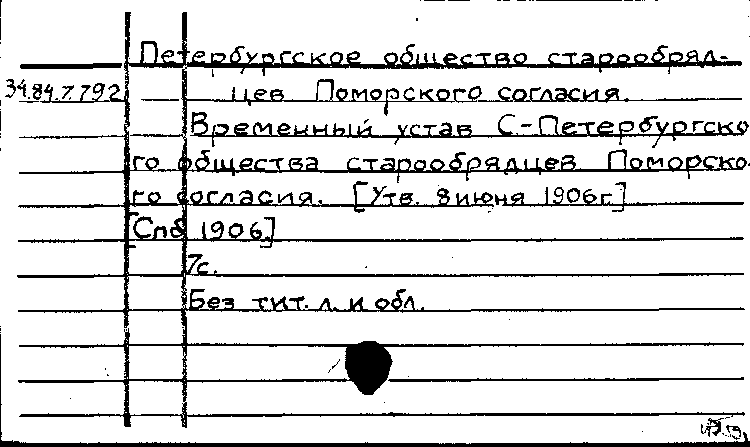 Петербургское общество старообряд-
34.84.7.792 цев Поморского согласия.
Временный устав С-Петербургско
го общества старообрядцев Поморско
го согласия. [Утв. 8 июня 1906 г.]
[Спб 1906.]
7с.
Без тит. л. и обл.